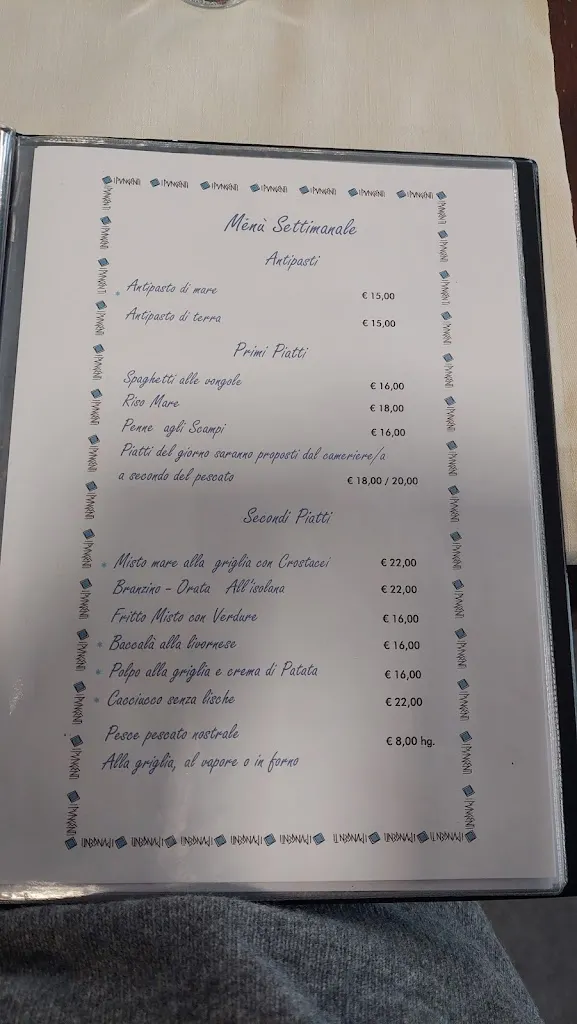 Menù Settimanale
Antipasti
Antipasto di mare € 15,00
Antipasto di terra € 15,00
Primi Piatti
Spaghetti alle vongole € 16,00
Riso Mare € 18,00
Penne agli Scampi € 16,00
Piatti del giorno saranno proposti dal cameriere/a
a secondo del pescato € 18,00 / 20,00
Secondi Piatti
Misto mare alla griglia con Crostacei € 22,00
Branzino - Orata All'isolana € 22,00
Fritto Misto con Verdure € 16,00
Baccalà alla livornese € 16,00
Polpo alla griglia e crema di Patata € 16,00
Cacciucco senza lische € 22,00
Pesce pescato nostrale € 8,00 hg.
Alla griglia, al vapore o in forno